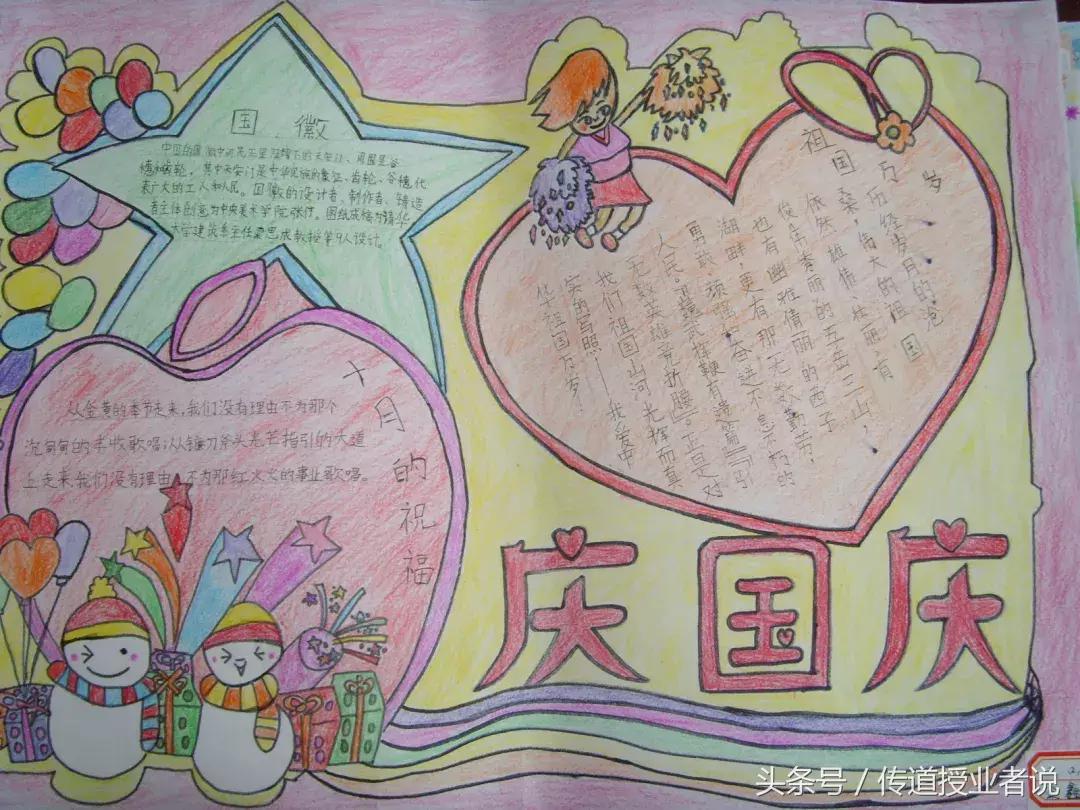 国 徽
中国的国徽中间是五星照耀下的天安门、周围是谷
穗和齿轮，其中天安门是中华民族的象征、齿轮、谷穗代
表广大的工人和人民。国徽的设计者、制作者、铸造
者主体创意为中央美术学院张仃。图纸成稿为清华
大学建筑系主任梁思成教授等9人设计。
十月的祝福
从金黄的季节走来，我们没有理由不为那个
沉甸甸的丰收歌唱；从镰刀斧头光芒指引的大道
上走来，我们没有理由不为那红火火的事业歌唱。
祖国万岁
历经岁月的沧
桑，伟大的祖国
依然雄伟、壮丽，有
俊秀青丽的五岳三山，
也有幽雅倩丽的西子
湖畔，更有那无数勤劳、
勇敢、顽强、奋进、不息不朽的
人民。
无数英雄竞折腰”。正是对
我们祖国山河光辉而真
实的写照——我爱中
华祖国万岁！
庆国庆
头条号 / 传道授业者说